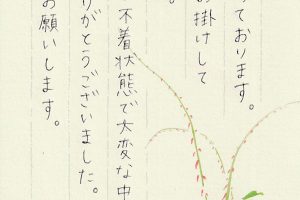 っております。
お掛けして
。
不着状態で大変な中
りがとうございました。
お願いします。